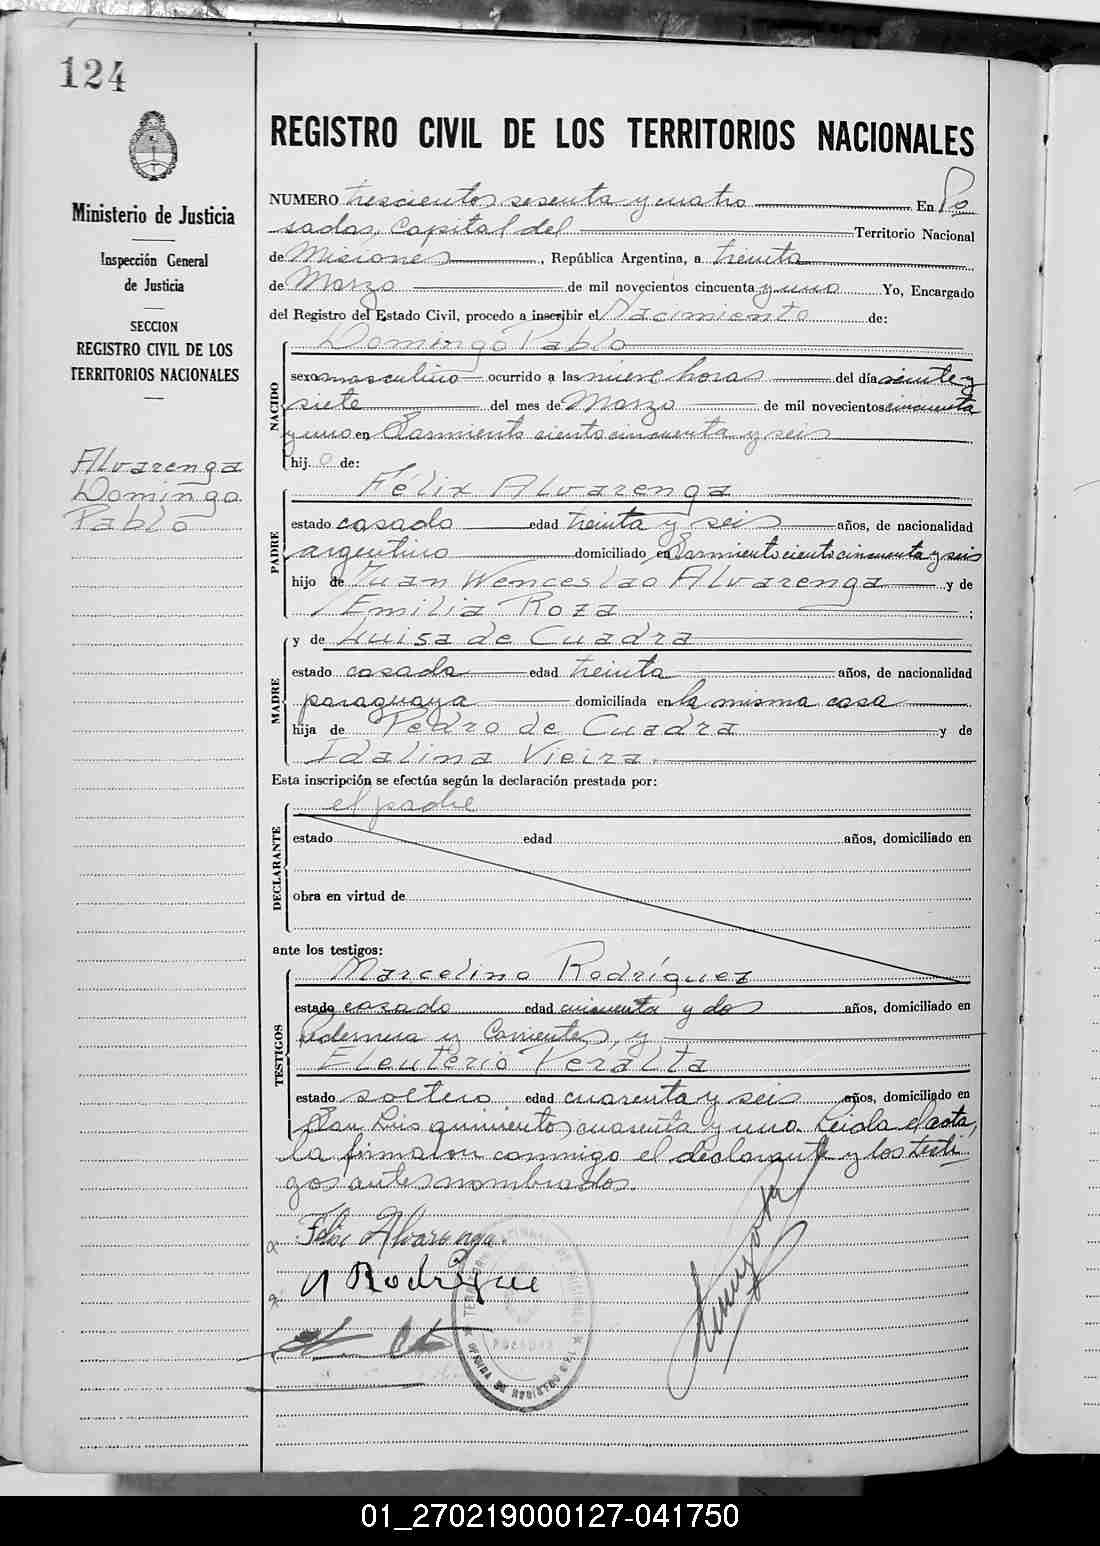 124
Ministerio de Justicia
Inspección General
de Justicia
SECCION
REGISTRO CIVIL DE LOS
TERRITORIOS NACIONALES
Alvarenga
Domingo
Pablo
REGISTRO CIVIL DE LOS TERRITORIOS NACIONALES
NUMERO trescientos sesenta y cuatro En Po
sadas, Capital del Territorio Nacional
de Misiones, República Argentina, a treinta
de Marzo de mil novecientos cincuenta y uno Yo, Encargado
del Registro del Estado Civil, procedo a inscribir el Nacimiento de:
NACIDO
Domingo Pablo
sexo masculino ocurrido a las nueve horas del día veinte y
siete del mes de Marzo de mil novecientos cincuenta
y uno en Sarmiento ciento cincuenta y seis
hij o de:
PADRE
Félix Alvarenga
estado casado edad treinta y seis años, de nacionalidad
argentino domiciliado en Sarmiento ciento cincuenta y seis
hijo de Juan Wenceslao Alvarenga y de
Emilia Roza ;
MADRE
y de Luisa de Cuadra
estado casada edad treinta años, de nacionalidad
paraguaya domiciliada en la misma casa
hija de Pedro de Cuadra y de
Idalina Vieira.
Esta inscripción se efectúa según la declaración prestada por:
DECLARANTE
el padre
estado edad años, domiciliado en
obra en virtud de
ante los testigos:
TESTIGOS
Marcelino Rodríguez
estado casado edad cincuenta y dos años, domiciliado en
Pedernera y Corrientes, y
Eleuterio Peralta
estado soltero edad cuarenta y seis años, domiciliado en
San Luis quinientos cuarenta y uno. Leída el acta,
la firmaron conmigo el declarante y los testi
gos antes nombrados.
Felix Alvarenga
M Rodrigue
POSADAS
01_270219000127-041750